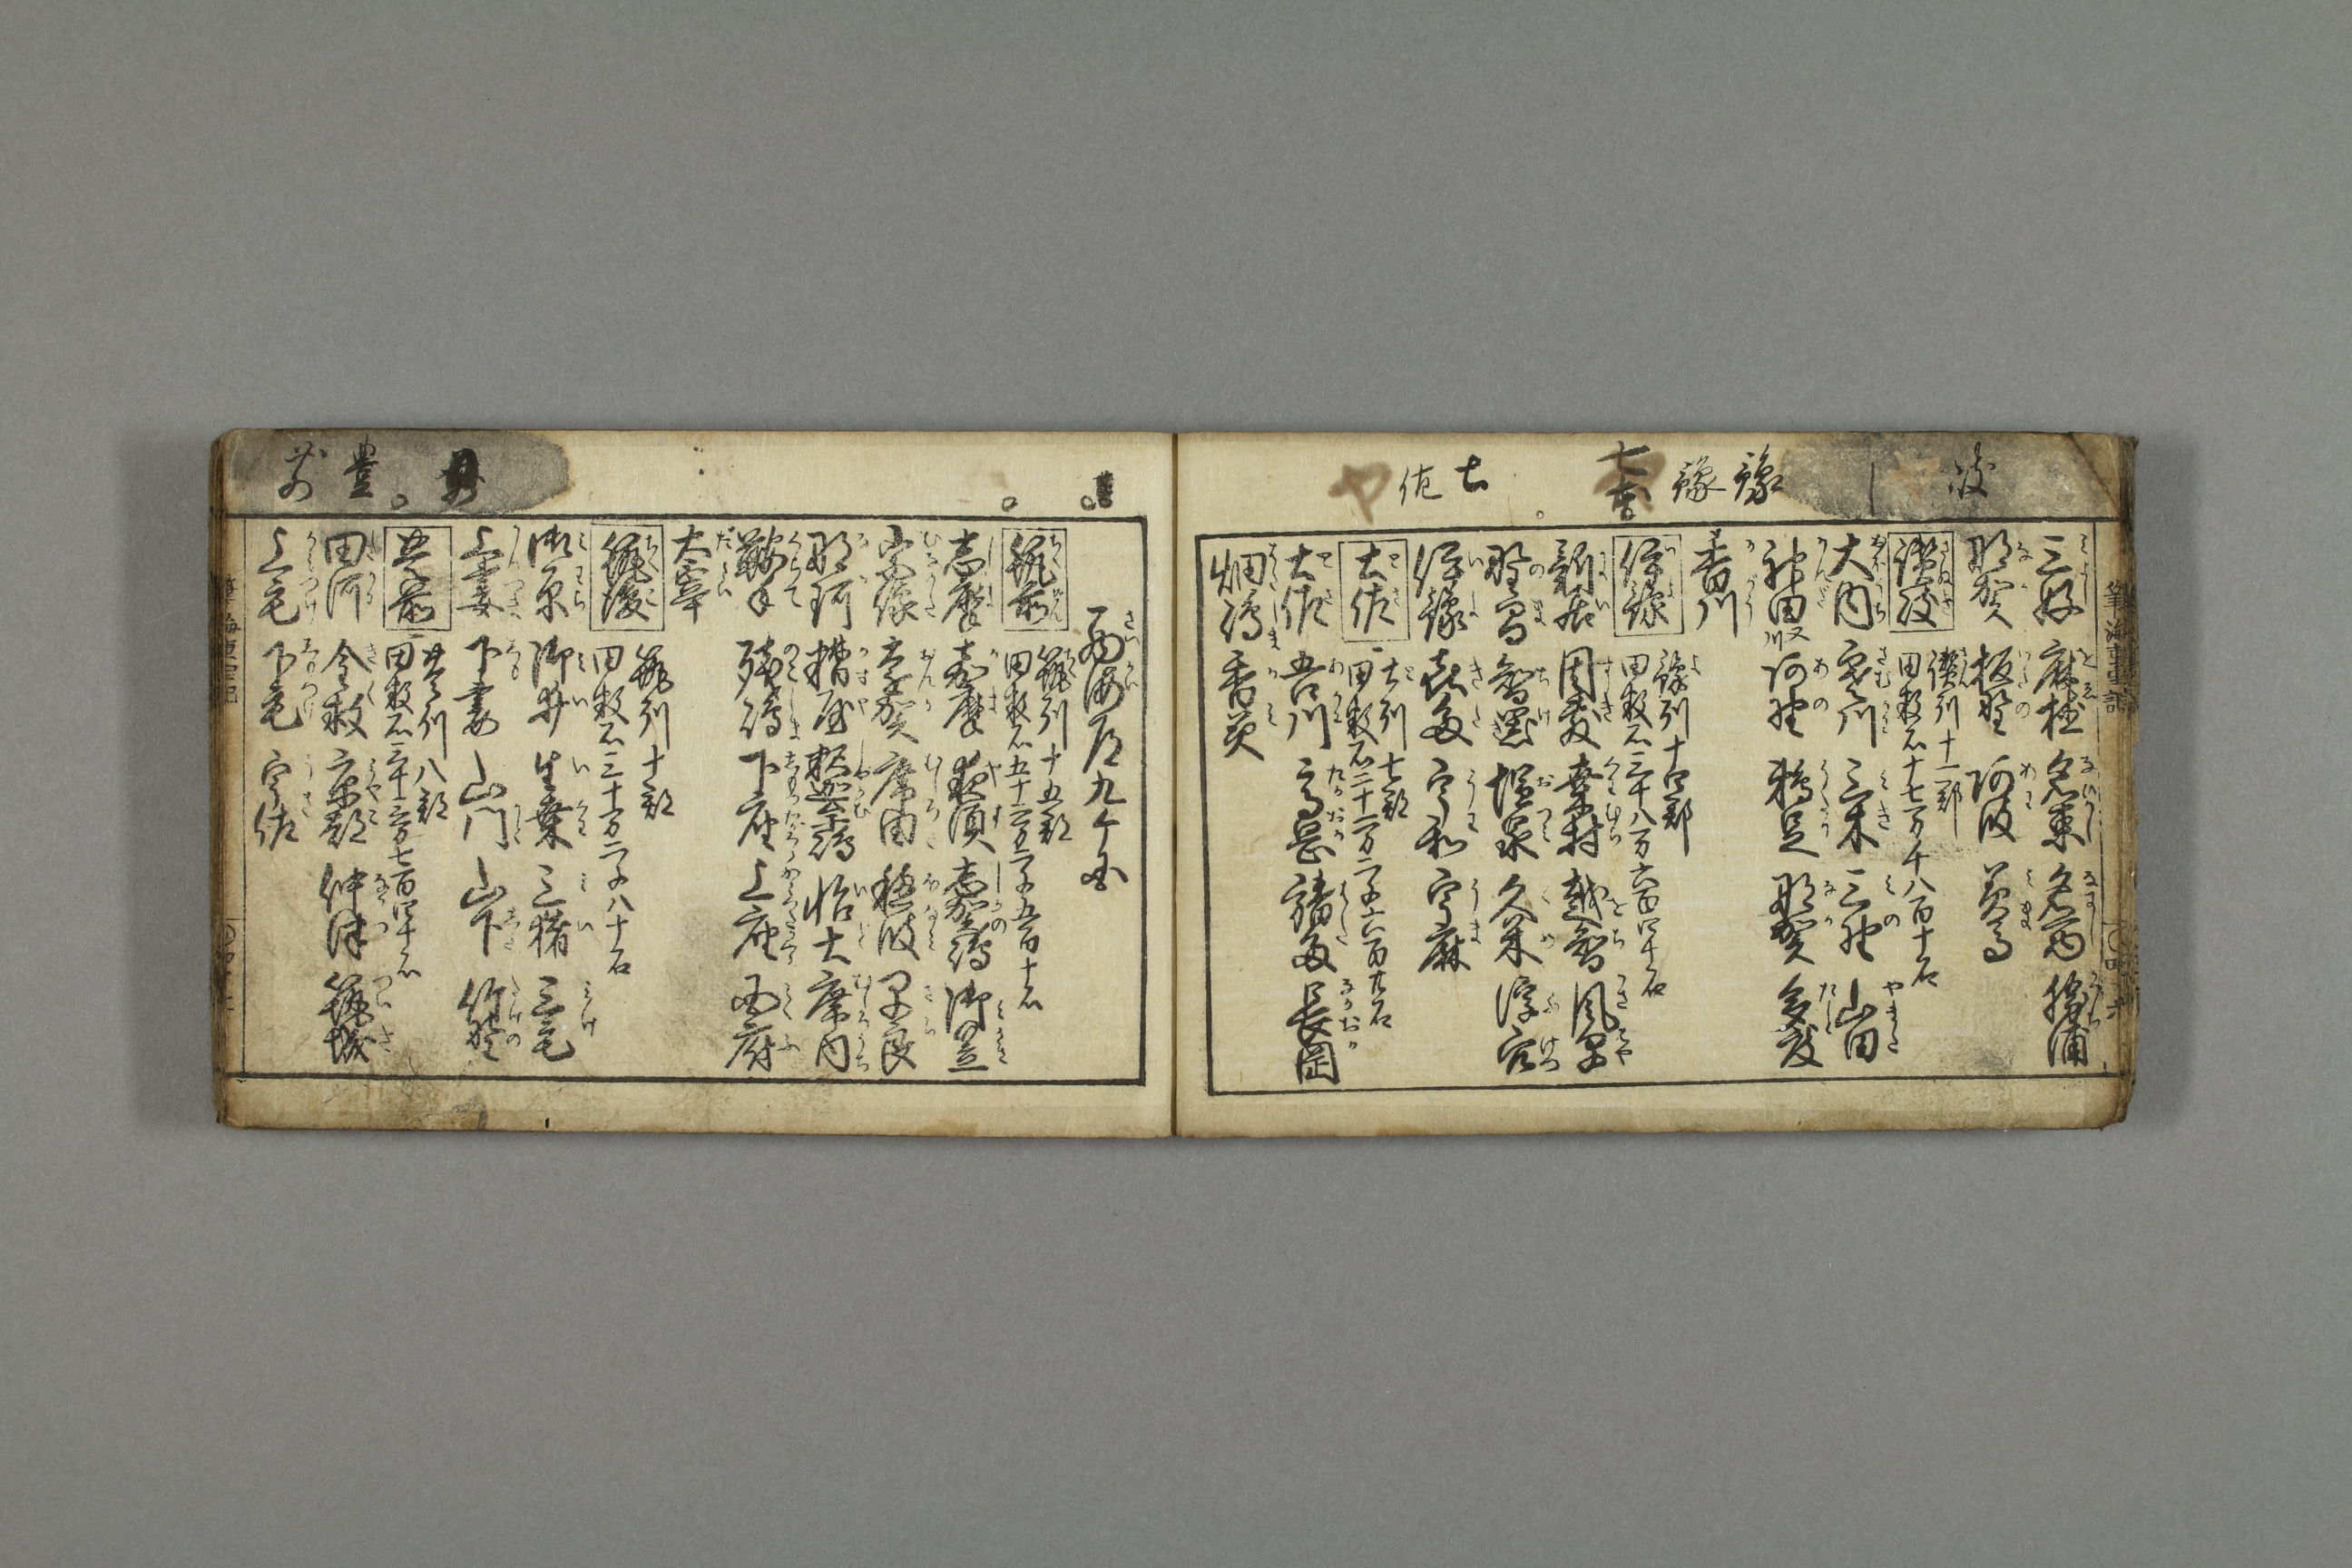 三好 麻植 名東 名西 勝浦
那賀 板野 阿波 美馬
讃岐 讃州十一郡
田数石十七万千八百十石
大内 寒川 三木 三野 山田
神田又川 阿野 鵜足 那賀 多度
香川
伊豫 豫州十四郡
田数石三十八万六百四十石
新居 周敷 桑村 越智 風早
野間 智器 温泉 久米 浮穴
伊豫 喜多 宇和 宇麻
土佐 土州七郡
田数石二十一万二千六百廿石
土佐 吾川 高岡 諸多 長岡
畑嶋 香美
西海道九ケ国
筑前 筑州十五郡
田数石五十二万二千五百十石
志摩 嘉摩 夜須 志賀嶋 御笠
宗像 遠賀 席田 穂波 早良
那珂 糟屋 怡土 席内
鞍手 残嶋 下座 上座 西府
太宰
筑後 筑州十郡
田数石三十万二千八十石
御原 御井 生葉 三猪 三毛
上妻 下妻 山門 山下 竹野
豊前 豊州八郡
田数石三十三万七百四十石
田河 企救 京都 仲津 築城
上毛 下毛 宇佐
豫 豫
土 佐
豊 前